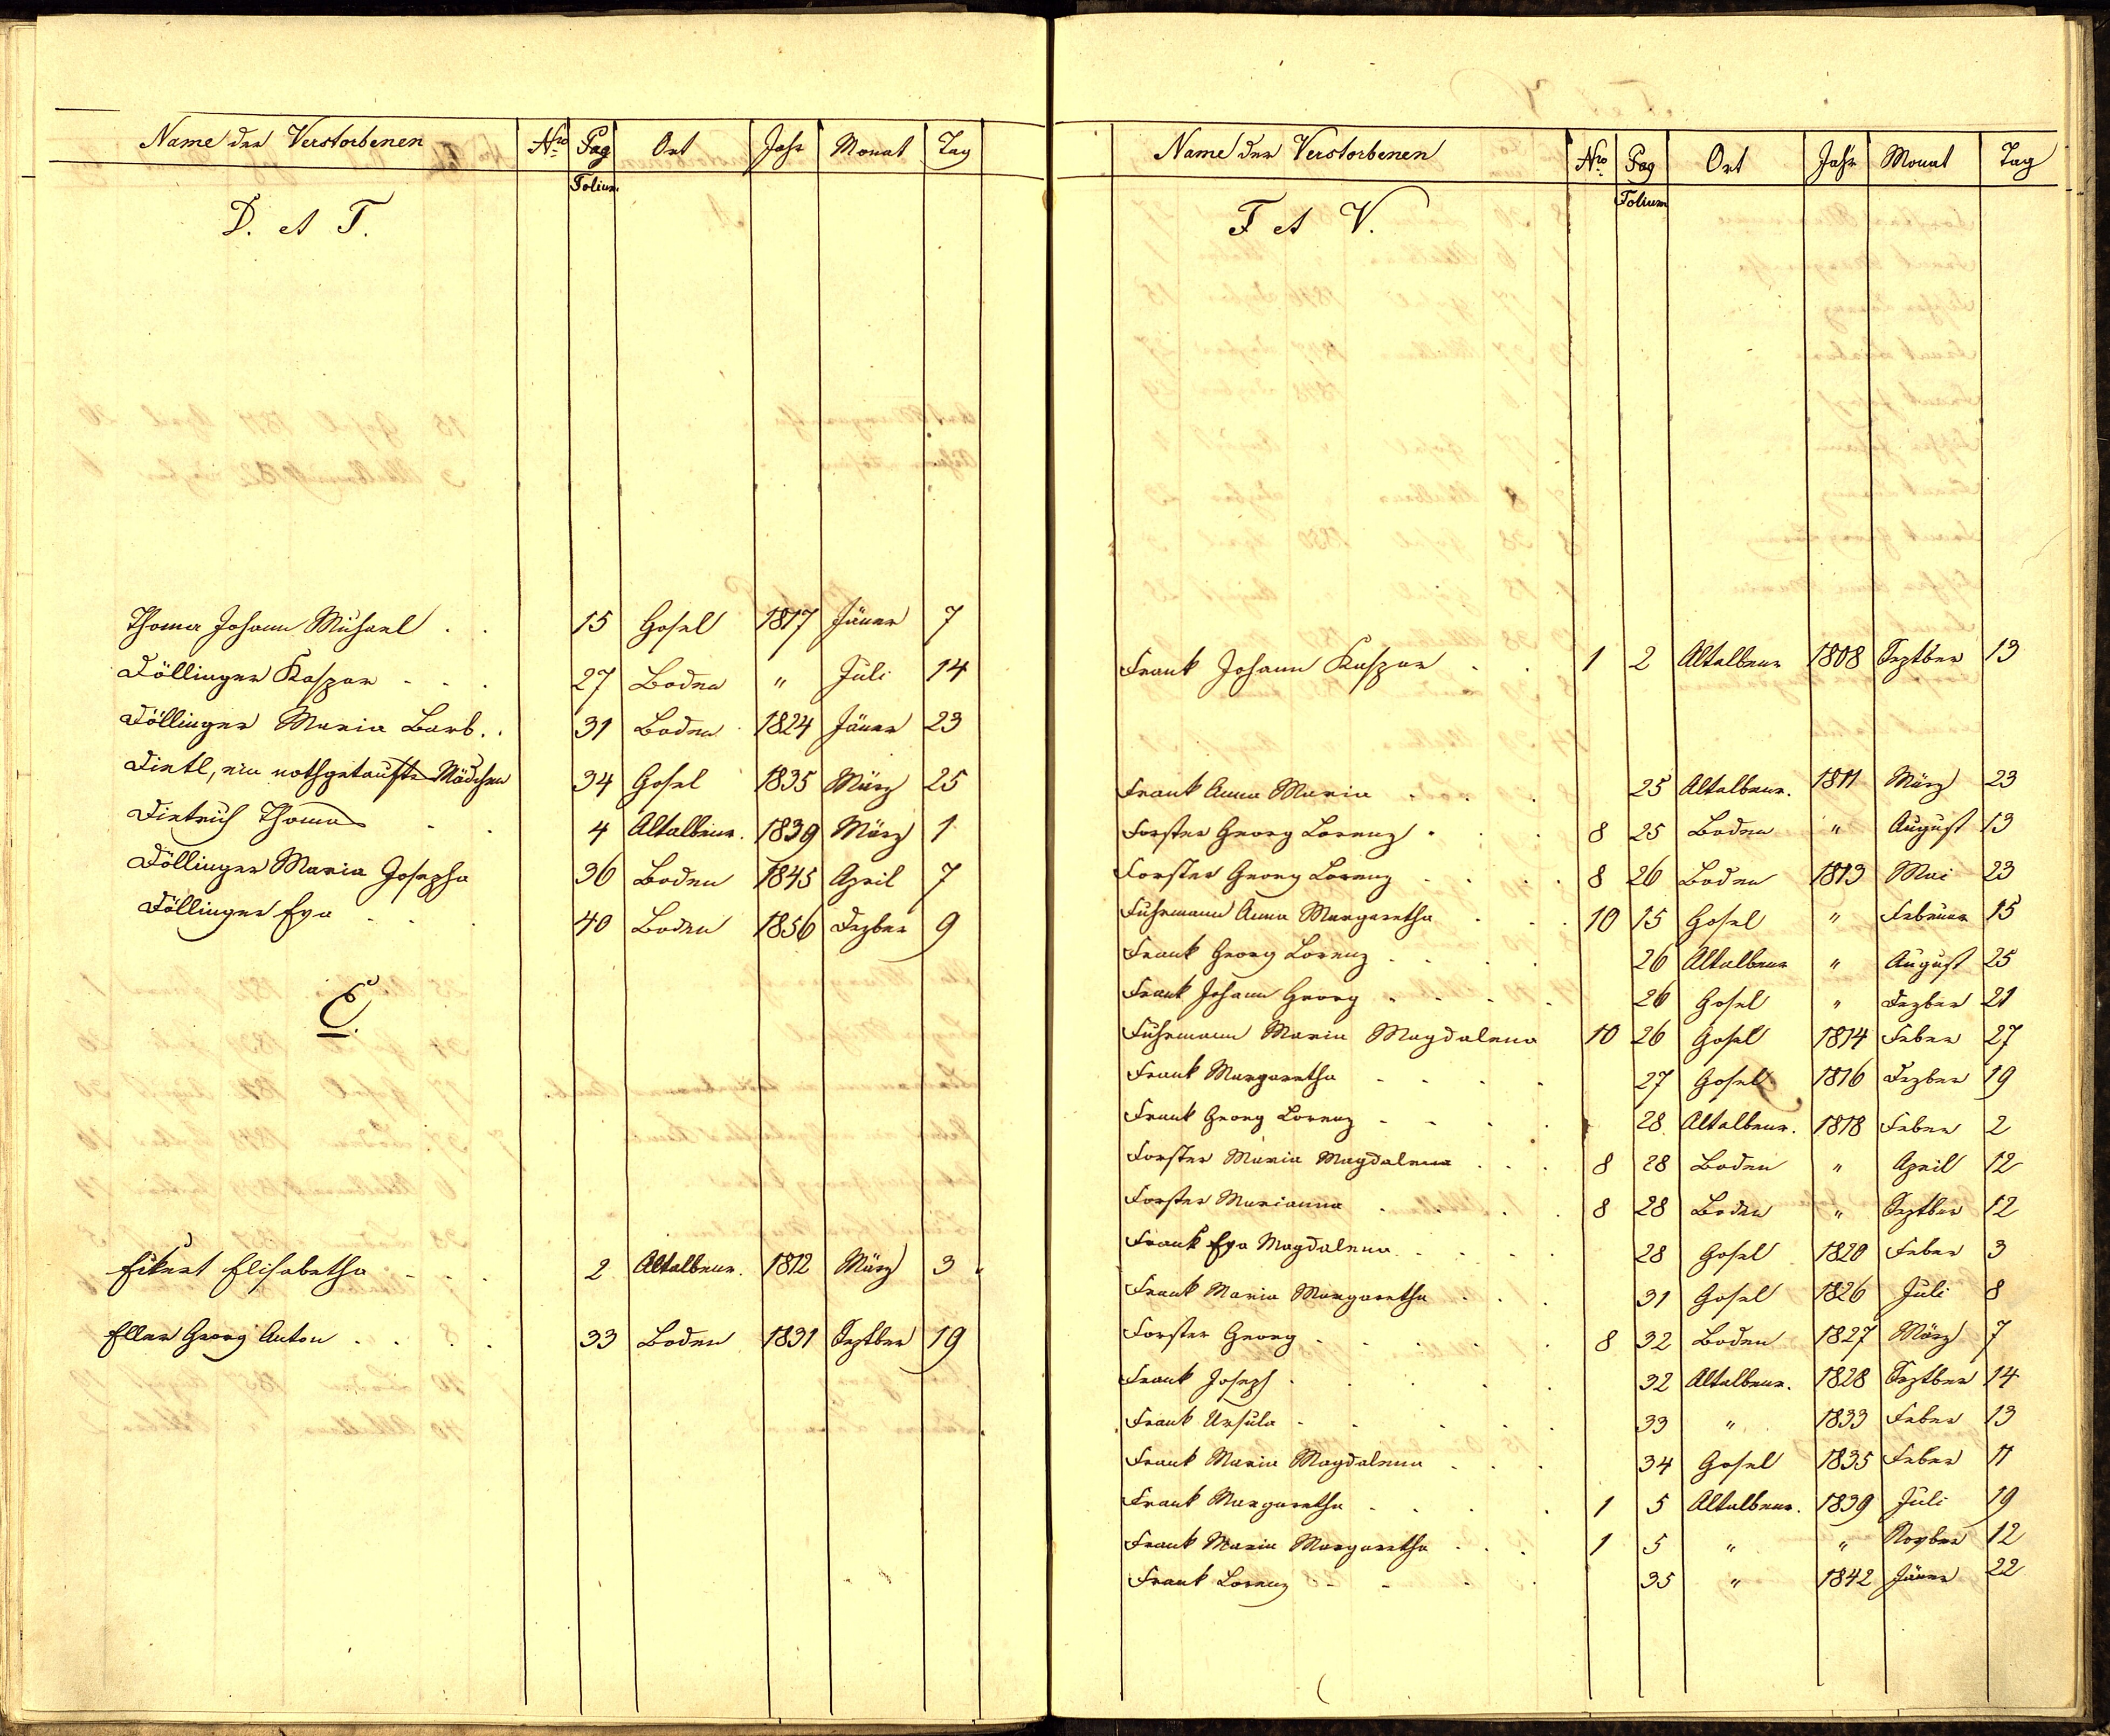 Name der Verstorbenen Nro Pag Ort Jahr Monat Tag
Folium
D. et T.
Thoma Johann Michael . . 15 Gosel 1817 Jäner 7
Döllinger Kaspar - - . 27 Boden " Juli 14
Döllinger Maria Barb. . 31 Boden 1824 Jäner 23
Dietl, ein nothgetauftes Mädchen 34 Gosel 1835 März 25
Dietrich Thomas - . 4 Altalbenr. 1839 März 1
Döllinger Maria Josepha 36 Boden 1845 April 7
Döllinger Eva - . . 40 Boden 1856 Dezber 9
E.
Eckert Elisabetha - - . 2 Altalbenr. 1812 März 3
Eller Georg Anton . . . . 33 Boden 1831 Septber 19
Name der Verstorbenen Nro Pag Ort Jahr Monat Tag
Folium
F et V.
Frank Johann Kaspar . . 1 2 Altalbenr 1808 Septber 13
Frank Anna Maria . . . 25 Altalbenr. 1811 März 23
Forster Georg Lorenz . . . 8 25 Boden " August 13
Forster Georg Lorenz . . . . 8 26 Boden 1813 Mai 23
Fuhrmann Anna Margaretha . . . 10 15 Gosel " Februar 15
Frank Georg Lorenz . . . . 26 Altalbenr " August 25
Frank Johann Georg . . . . 26 Gosel " Dezber 21
Fuhrmann Maria Magdalena 10 26 Gosel 1814 Feber 27
Frank Margaretha - - . . 27 Gosel 1816 Dezber 19
Frank Georg Lorenz - - . . 28 Altalbenr. 1818 Feber 2
Forster Maria Magdalena . . . 8 28 Boden " April 12
Forster Marianna . . . . 8 28 Boden " Septber 12
Frank Eva Magdalena . . . . 28 Gosel 1820 Feber 3
Frank Maria Margaretha . . . 31 Gosel 1826 Juli 8
Forster Georg . . . . . 8 32 Boden 1827 März 7
Frank Joseph . . . . . 32 Altalbenr. 1828 Septber 14
Frank Ursula - - . . . 33 " 1833 Feber 13
Frank Maria Magdalena . . . 34 Gosel 1835 Feber 11
Frank Margaretha - . . . 1 5 Altalbenr. 1839 Juli 19
Frank Maria Margaretha . . . 1 5 " " Novber 12
Frank Lorenz - - . . 35 " 1842 Jäner 22